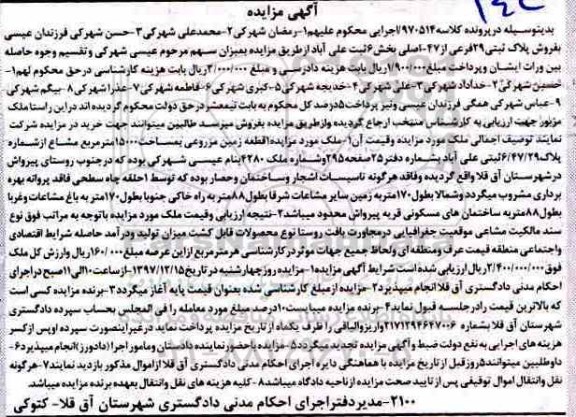 آگهی مزایده
بدینوسیله در پرونده کلاسه ۹۷۰۵۱۴/اجرایی محکوم علیهم۱-رمضان شهرکی۲-محمدعلی شهرکی۳-حسن شهرکی فرزندان عیسی
بفروش پلاک ثبتی ۲۹فرعی از۴۷-اصلی بخش۶ثبت علی آباد از طریق مزایده بمیزان سهم مرحوم عیسی شهرکی و تقسیم وجوه حاصله
بین وراث ایشان وپرداخت مبلغ ۱/۹۰۰/۰۰۰ریال بابت هزینه دادرسی و مبلغ ۲/۰۰۰/۰۰۰ریال بابت هزینه کارشناسی درحق محکوم لهم۱-
حسین شهرکی۲-خداداد شهرکی۳-علی شهرکی۴-خدیجه شهرکی۵-کبری شهرکی۶-فاطمه شهرکی۷-عذرا شهرکی۸-بیگم شهرکی
۹-عباس شهرکی همگی فرزندان عیسی ونیز پرداخت۵درصد کل محکوم به بابت نیمعشر در حق دولت محکوم گردیده اند در این راستا ملک
مزبور جهت ارزیابی به کارشناس منتخب ارجاع گردیده واز طریق مزایده بفروش میرسد طالبین میتوانند جهت خرید در مزایده شرکت
نمایند توصیف اجمالی ملک مورد مزایده وقیمت آن۱-ملک مورد مزایده۱قطعه زمین مزروعی بمساحت۱۵۰۰۰مترمربع مشاع ازششماره
پلاک۶/۴۷/۲۹ثبتی علی آباد بشماره دفتر۲۵صفحه۲۹۵وشماره ملک۴۲۸۰بنام عیسی شهرکی بوده که درجنوب روستای پیرواش
در شهرستان آق قلا واقع گردیده وفاقد هرگونه تاسیسات اشجار وساختمان وحصار بوده که توسط۱حلقه چاه سطحی فاقد پروانه بهره
برداری مشروب میگردد وشمالا بطول۱۷۰متربه زمین سایر مشاعات شرقا بطول۸۸متربه راه خاکی جنوبا بطول۱۷۰متربه باغ مشاعات وغربا
بطول۸۸متربه ساختمان های مسکونی قریه پیرواش محدود میباشد۲-نتیجه ارزیابی وقیمت ملک مورد مزایده باتوجه به مراتب فوق نوع
سند مالکیت مشاعی موقعیت جغرافیایی درمجاورت بافت روستا نوع محصولات قابل کشت میزان تولید ودرآمد حاصله شرایط اقتصادی
واجتماعی منطقه قیمت عرف ومنطقه ای ولحاظ جمیع جهات موثر در کارشناسی هر مترمربع از این عرصه مبلغ۱۶۰/۰۰۰ریال وارزش کل ملک
فوق ۲/۴۰۰/۰۰۰/۰۰۰ریال ارزیابی شده است شرایط آگهی مزایده۱-مزایده روز چهارشنبه در تاریخ۱۳۹۷/۱۲/۱۵-از ساعت۱۰الی۱۱صبح در اجرای
احکام مدنی دادگستری آق قلا انجام میپذیرد۲-مزایده از مبلغ کارشناسی شده بعنوان قیمت پایه آغاز میگردد۳-برنده مزایده کسی است
که بالاترین قیمت را درجلسه قبول نماید۴-برنده مزایده میبایست۱۰درصد مورد معامله را فی المجلس بحساب سپرده دادگستری
شهرستان آق قلا بشماره ۲۱۷۱۲۹۴۶۴۷۰۰۶واریز والباقی را ظرف یکماه از تاریخ مزایده پرداخت نماید در غیر اینصورت سپرده او پس از کسر
هزینه های اجرایی به نفع دولت ضبط و آگهی مزایده تجدید میگردد۵-مزایده باحضور نماینده دادستان ومامور اجرا(دادورز)انجام میپذیرد۶-
داوطلبین میتوانند۵روز قبل از تاریخ مزایده با هماهنگی دایره اجرای احکام مدنی دادگستری آق قلا از اموال مذکور بازدید نمایند۷-هرگونه
نقل وانتقال اموال توقیفی پس از تایید صحت مزایده از ناحیه دادگاه میباشد۸-کلیه هزینه های نقل وانتقال بعهده برنده مزایده میباشد.
۲۱۰۰-مدیر دفتر اجرای احکام مدنی دادگستری شهرستان آق قلا- کتوکی